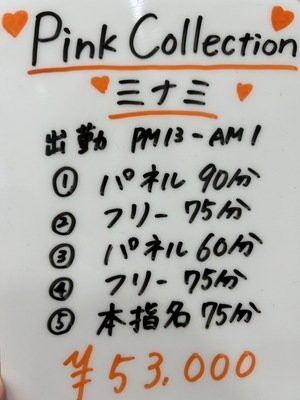 Pink Collection
ミナミ
出勤 PM13-AM1
① パネル 90分
② フリー 75分
③ パネル 60分
④ フリー 75分
⑤ 本指名 75分
¥53.000